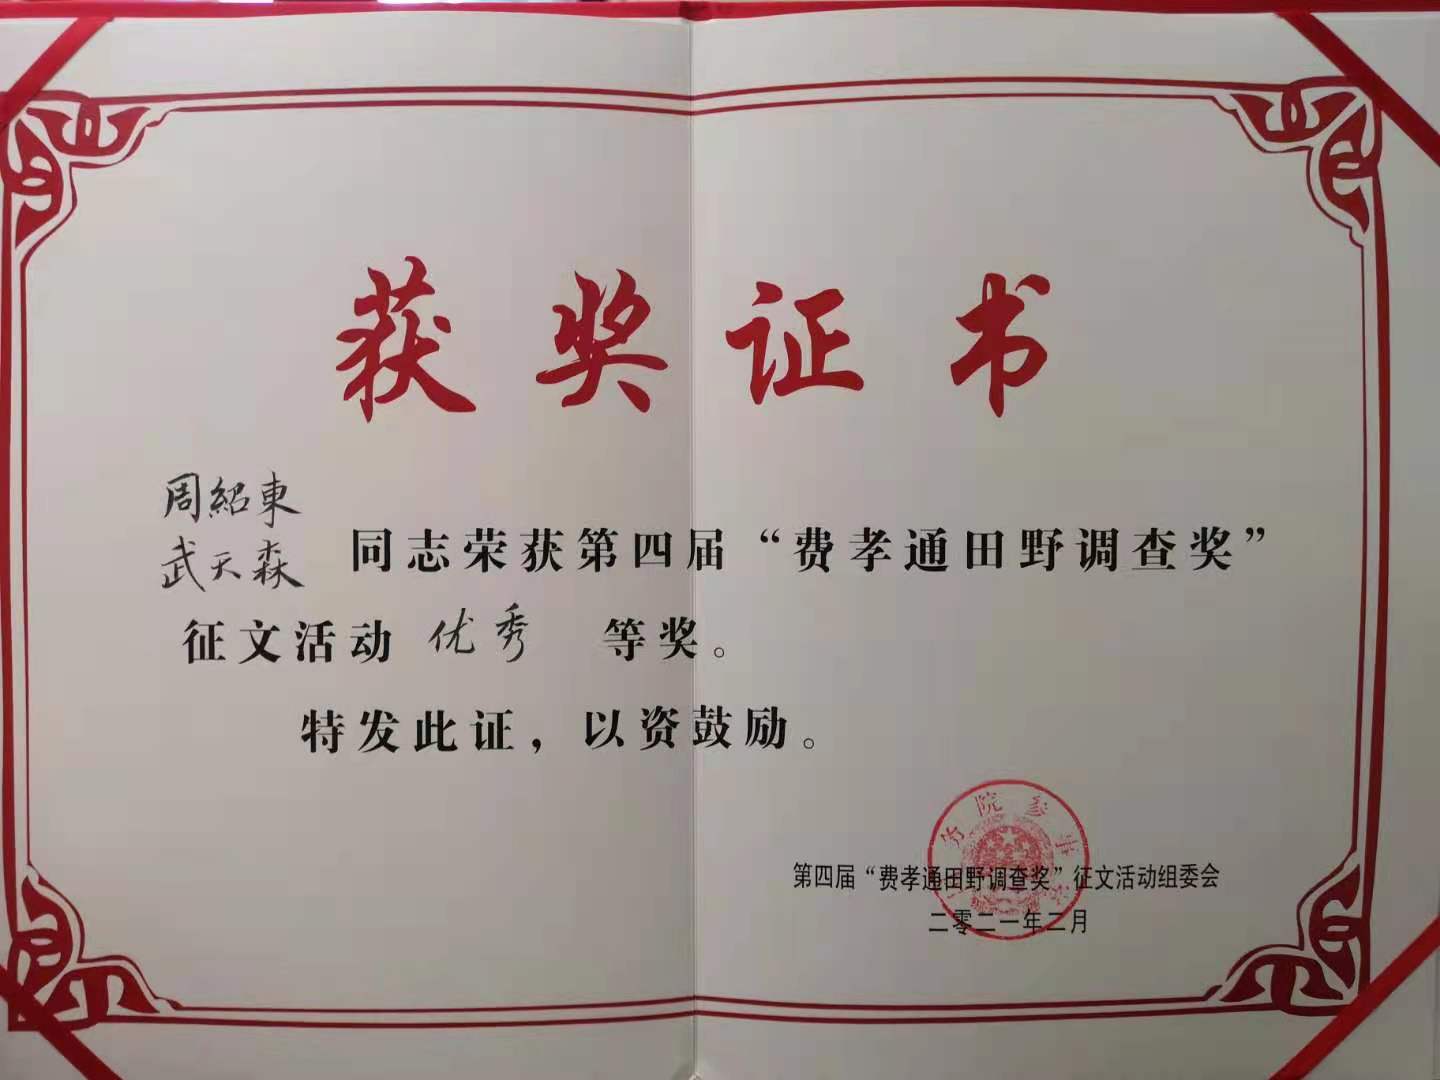 获奖证书
周紹東
武天森
同志荣获第四届“费孝通田野调查奖”
征文活动 优秀 等奖。
特发此证，以资鼓励。
第四届“费孝通田野调查奖”征文活动组委会
二零二一年二月